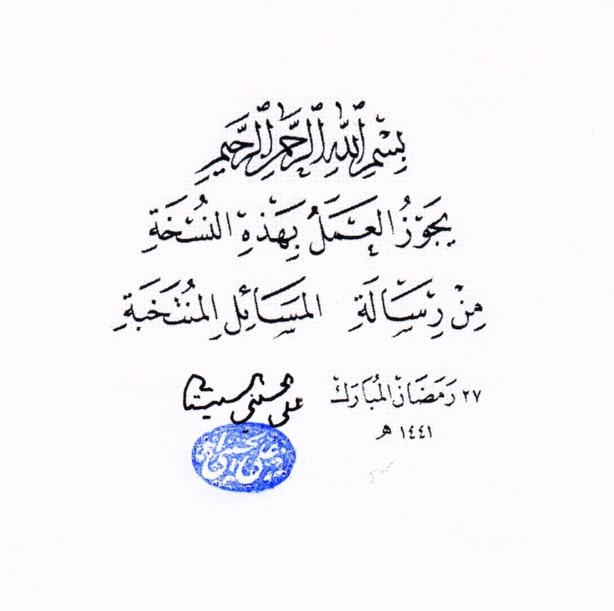 بِسْمِ اللهِ الرَّحْمٰنِ الرَّحِيمِ
يَجُوْزُ العَمَلُ بِهٰذِهِ النُسْخَةِ
مِنْ رِسَالَةِ المَسَائِلِ المُنْتَخَبَةِ
٢٧ رَمَضَانْ المُبَارَكْ
١٤٤١ هـ
علي الحسيني السيستاني